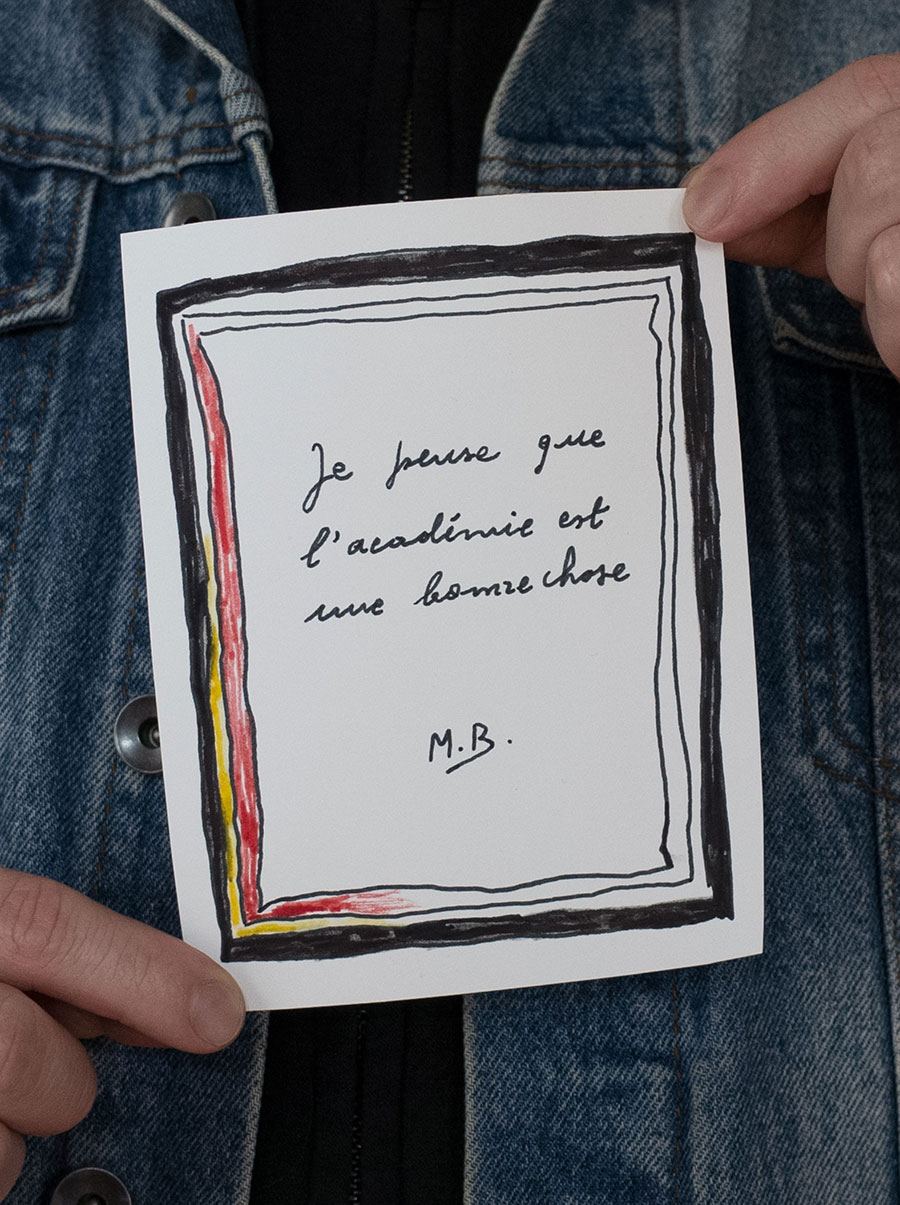 Je pense que
l'académie est
une bonne chose
M.B.